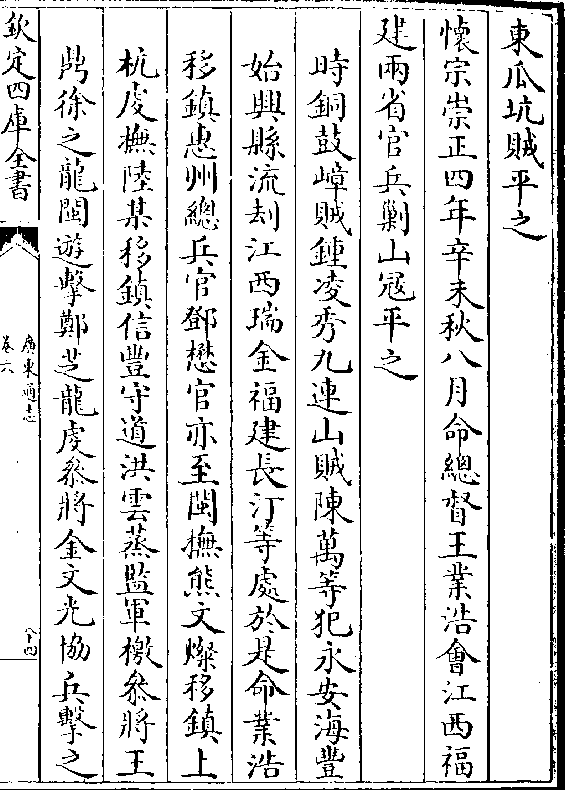 東瓜坑賊平之
懷宗崇正四年辛未秋八月命總督王業浩會江西福
建兩省官兵剿山冦平之
時銅鼓嶂賊鍾凌秀九連山賊陳萬等犯永安海豐
始興縣流刦江西瑞金福建長汀等處於是命業浩
移鎮惠州總兵官鄧懋官亦至閩撫熊文燦移鎮上
杭虔撫陸某移鎮信豐守道洪雲蒸監軍檄叅將王
鼎徐之龍閩遊擊鄭芝龍虔叅將金文光協兵擊之
欽定四庫全書
廣東通志
卷六